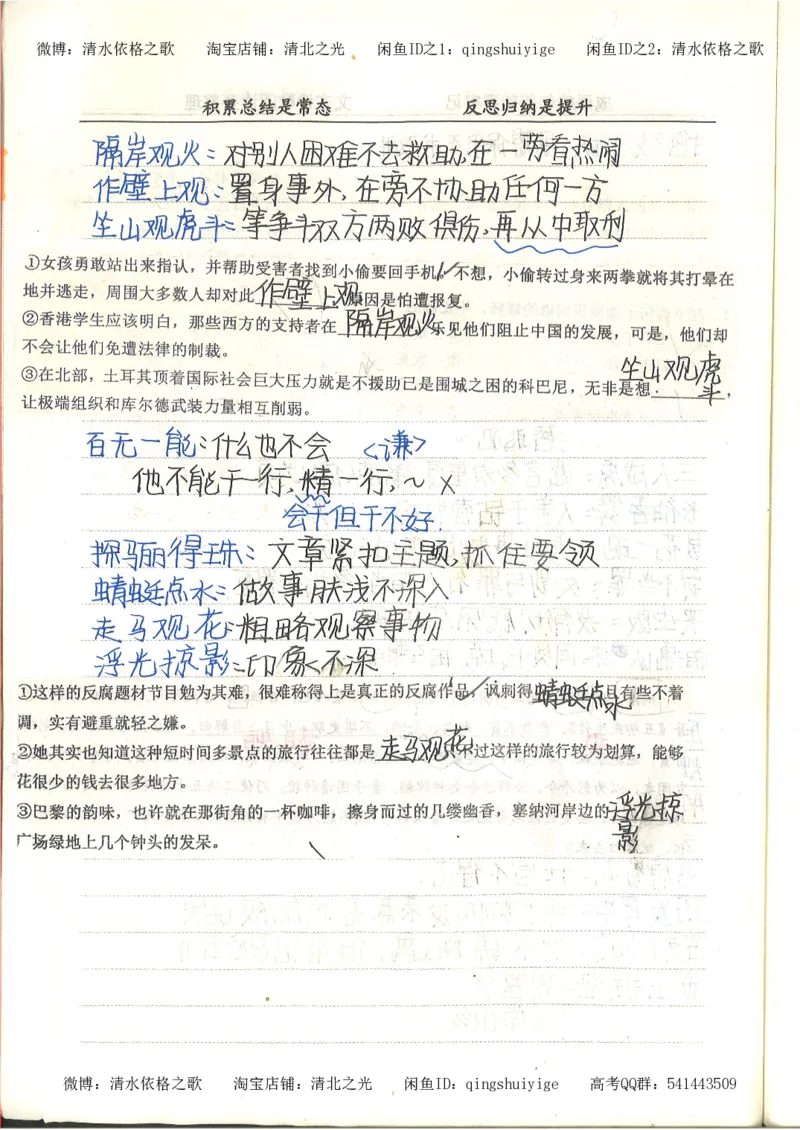 微博：清水依格之歌 淘宝店铺：清北之光 闲鱼ID之1：qingshuiyige 闲鱼ID之2：清水依格之歌
积累总结是常态 反思归纳是提升
隔岸观火：对别人困难不去救助，在一旁看热闹
作壁上观：置身事外，在旁不协助任何一方
坐山观虎斗：等争斗双方两败俱伤，再从中取利
①女孩勇敢站出来指认，并帮助受害者找到小偷要回手机。不想，小偷转过身来两拳就将其打晕在
地并逃走，周围大多数人却对此作壁上观原因是怕遭报复。
②香港学生应该明白，那些西方的支持者在隔岸观火乐见他们阻止中国的发展，可是，他们却
不会让他们免遭法律的制裁。
③在北部，土耳其顶着国际社会巨大压力就是不援助已是围城之困的科巴尼，无非是想坐山观虎斗，
让极端组织和库尔德武装力量相互削弱。
百无一能：什么也不会 <谦>
他不能干一行，精一行，~ ×
会干但干不好.
探骊得珠：文章紧扣主题，抓住要领
蜻蜓点水：做事肤浅不深入
走马观花：粗略观察事物
浮光掠影：印象不深
①这样的反腐题材节目勉为其难，很难称得上是真正的反腐作品，讽刺得蜻蜓点水且有些不着
调，实有避重就轻之嫌。
②她其实也知道这种短时间多景点的旅行往往都是走马观花过这样的旅行较为划算，能够
花很少的钱去很多地方。
③巴黎的韵味，也许就在那街角的一杯咖啡，擦身而过的几缕幽香，塞纳河岸边的浮光掠影
广场绿地上几个钟头的发呆。
微博：清水依格之歌 淘宝店铺：清北之光 闲鱼ID：qingshuiyige 高考QQ群：541443509